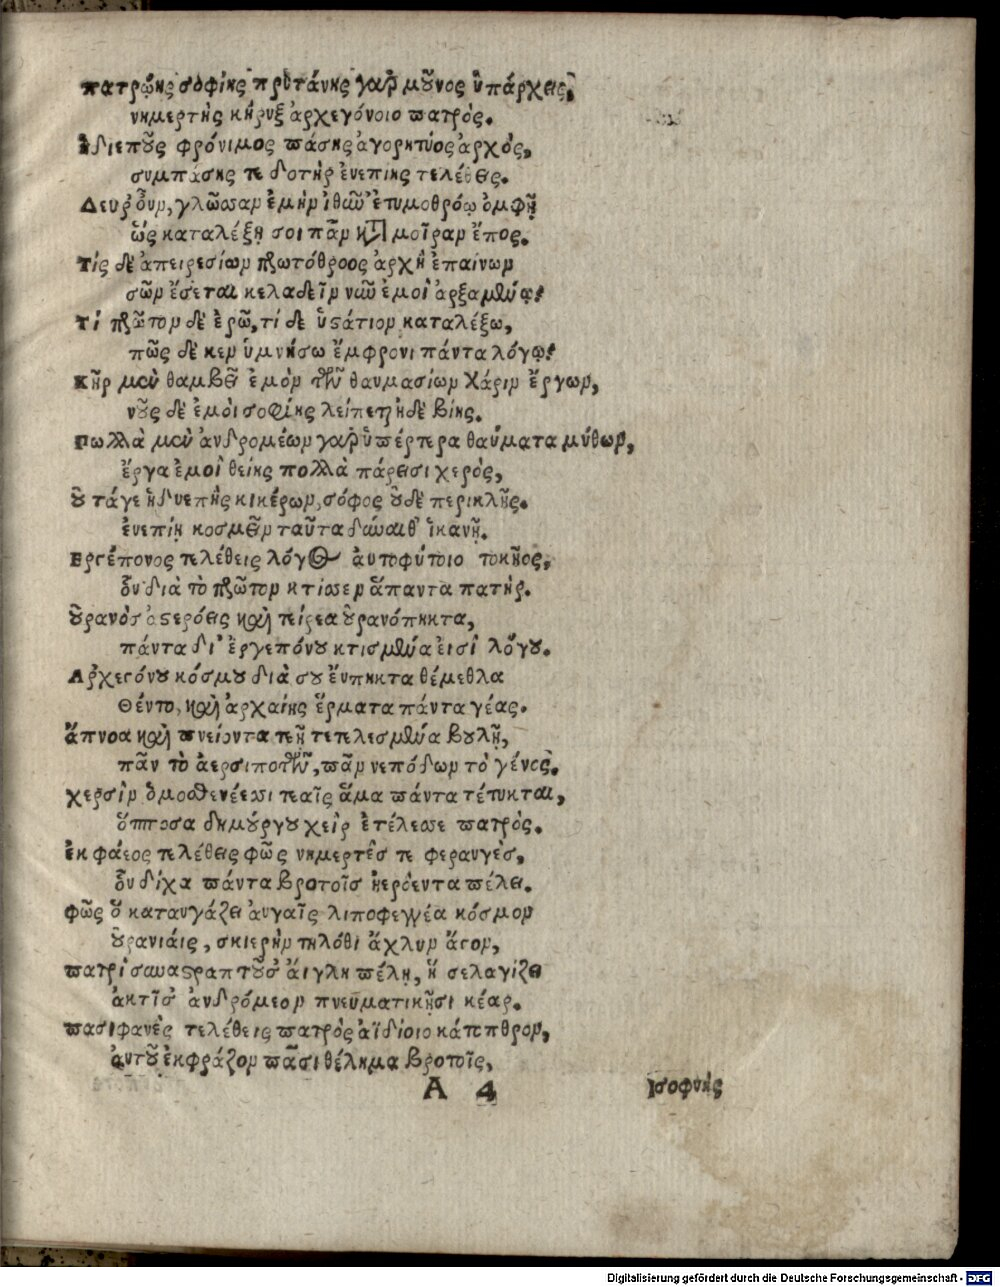 πατρῴης σοφίης πρύτάνης γὰρ μοῦνος ὑπάρχεις,
νημερτὴς κήρυξ ἀρχεγόνοιο πατρός.
ἡδιεπὺς φρόνιμος πάσης ἀγορητύος ἀρχὸς,
συμπάσης τε δοτὴρ ἐυεπίης τελέθεις.
Δευρ οὖν, γλῶσσαν ἐμὴν ἰθῦν ἐτυμοθρόῳ ὀμφῇ
ὥς καταλέξῃ σοι πᾶν κατὰ μοῖραν ἔπος.
Τίς δὲ ἀπειρεσίων πρωτόθροος ἀρχὴ ἐπαίνων
σῶν ἔσεται κελαδεῖν νῦν ἐμοὶ ἀρξαμένῳ;
Τί πρῶτον δὲ ἐρῶ, τί δὲ ὑστάτιον καταλέξω,
πῶς δὲ κεν ὑμνήσω ἔμφρονι πάντα λόγῳ;
Κῆρ μου θαμβεῖ ἐμὸν τῶν θαυμασίων χάριν ἔργων,
νοῦς δὲ ἐμὸι σοφίης λείπεται ἠδὲ βίης.
Πολλὰ μου ἀνδρομέων γὰρ ὑπέρτερα θαύματα μύθων,
ἔργα ἐμοὶ θείης πολλὰ πάρεισι χερὸς,
οὐ τάγε ἡδυεπὴς κικέρων, σόφος οὐδὲ περικλῆς.
ἐυεπίῃ κοσμεῖν ταῦτα δύναιθ' ἱκανῇ.
Εργέπονος τελέθεις λόγος αυτοφύτοιο τοκῆος,
ὃν διὰ τὸ πρῶτον κτίσσεν ἅπαντα πατήρ.
οὐρανὸσ ἀστερόεις καὶ τείρεα οὐρανόπηκτα,
πάντα δι' ἐργεπόνου κτισμένα εἰσὶ λόγου.
Αρχεγόνου κόσμου διὰ σου ἔυπηκτα θέμεθλα
Θέντο, καὶ ἀρχαίης ἕρματα πάντα γέας.
ἄπνοα καὶ πνείοντα τεῇ τετελεσμένα βουλῇ,
πᾶν τὸ ἀερσιποτῶν, πᾶν νεπόδων τὸ γένος.
χερσὶν ὁμοσθενέεσσι τεαῖς ἅμα πάντα τέτυκται,
ὅπποσα δημιουργοῦ χεὶρ ἐτέλεσσε πατρός.
ἐκ φάεος τελέθεις φῶς νημερτές τε φεραυγὲς,
οὗ δίχα πάντα βροτοῖσ ἠερόεντα πέλει.
φῶς ὃ καταυγάζει ἀυγαῖς λιποφεγγέα κόσμον
οὐρανιάις, σκιερὴν τηλόθι ἄχλυν ἄγον,
πατρὶ συναστραπτοῦσ' ἄιγλη πέλῃ, ἣ σελαγίζει
ἀκτῖσ' ἀνδρόμεον πνευματικῇσι κέαρ.
πασιφανὲς τελέθεις πατρὸς αἰδίοιο κάτοπτρον,
ἀυτοῦ ἐκφράζον πᾶσι θέλημα βροτοῖς,
A 4 Ισοφυής
Digitalisierung gefördert durch die Deutsche Forschungsgemeinschaft - DFG